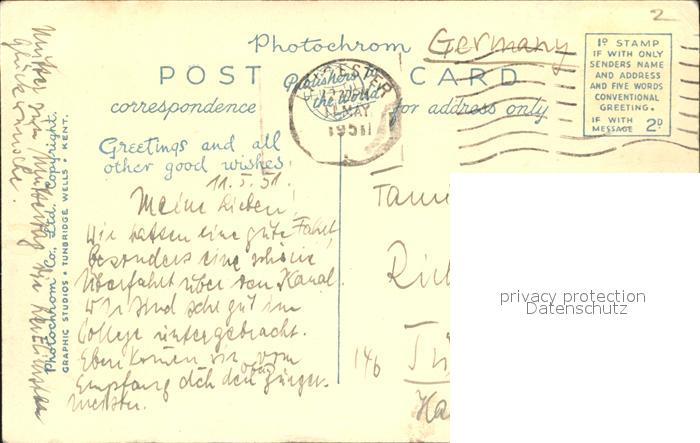 Photochrom
Germany
2
POST CARD
Publishers to
the World
correspondence
for address only
1D STAMP
IF WITH ONLY
SENDERS NAME
AND ADDRESS
AND FIVE WORDS
CONVENTIONAL
GREETING.
IF WITH
MESSAGE 2D
11 MAY
1951
Greetings and all
other good wishes
11.5.51.
Meine Lieben!
Wir hatten eine gute Fahrt,
besonders eine schöne
Überfahrt über den Kanal.
Wir sind sehr gut im
College untergebracht.
Eben kommen wir vom
Empfang dch den Bürger-
meister.
146
Photochrom Co., Ltd. Copyright.
GRAPHIC STUDIOS • TUNBRIDGE WELLS • KENT.
Glückwünsche.
privacy protection
Datenschutz